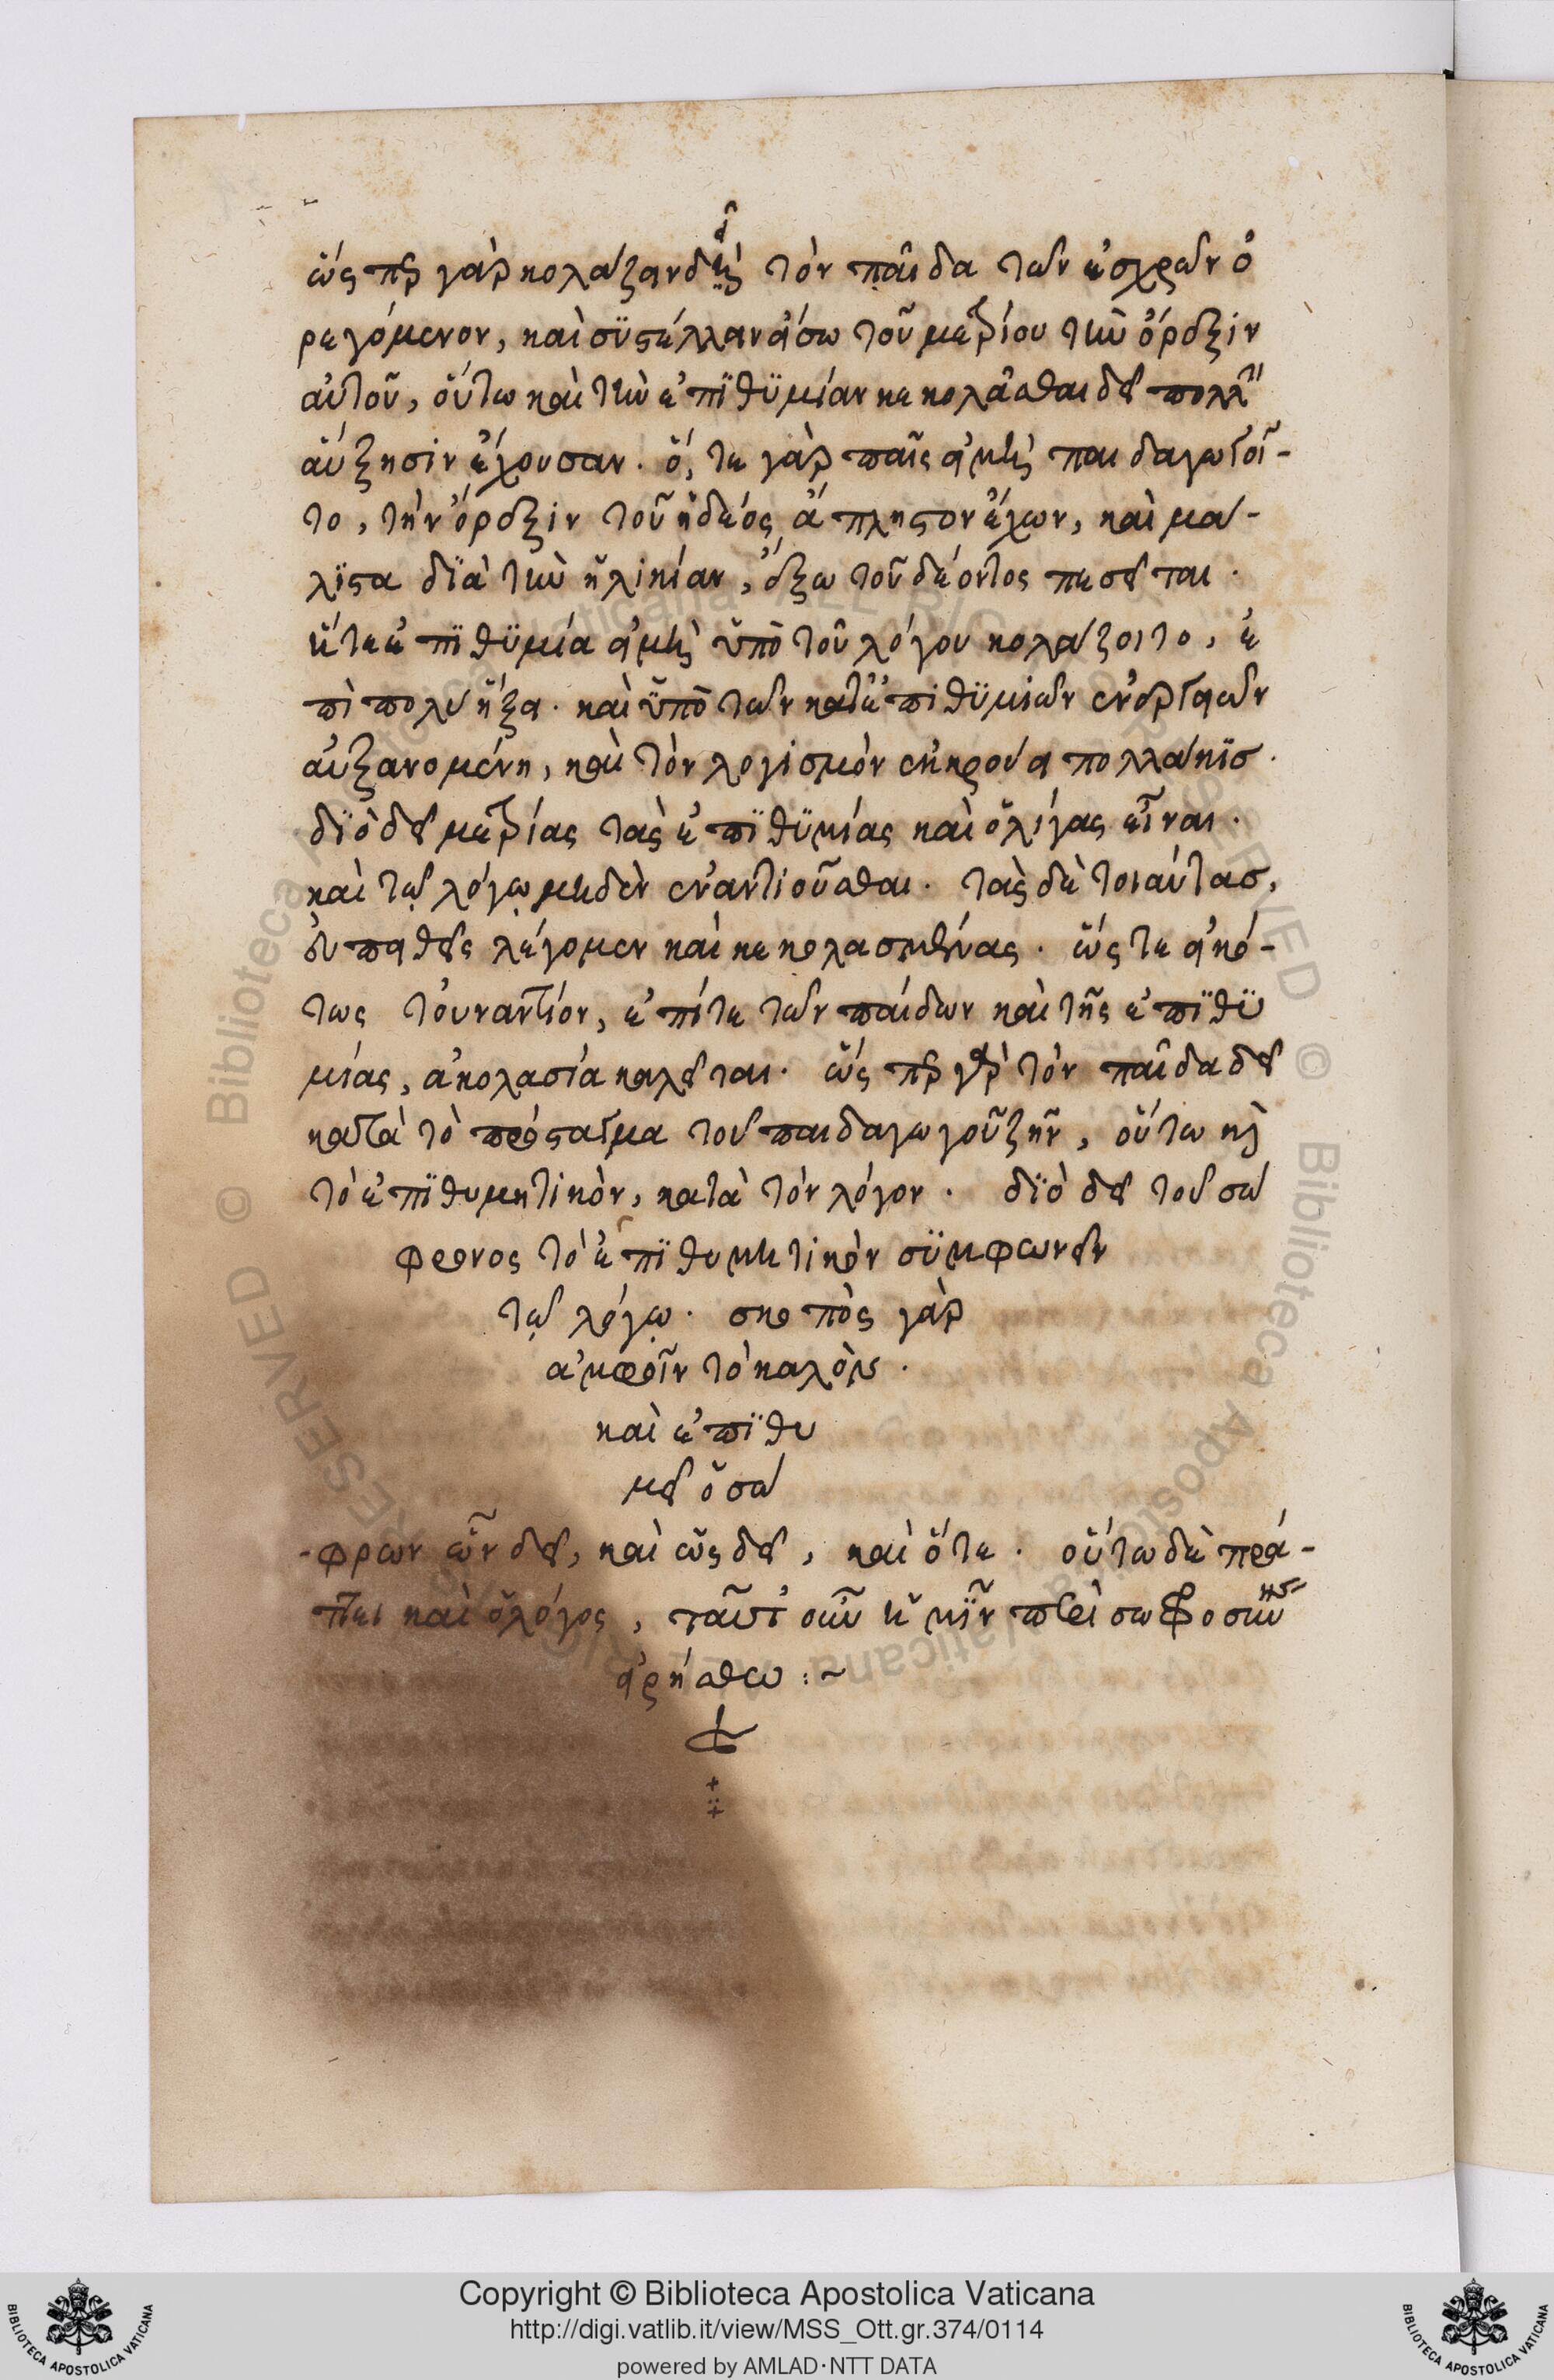 ὥς περ γὰρ κολάζειν δεῖ τὸν παῖδα τῶν ἐσχρῶν ὀ
ρεγόμενον, καὶ συστέλλειν εἴσω τοῦ μετρίου τὴν ὄρεξιν
αὐτοῦ, οὕτω καὶ τὴν ἐπιθυμίαν κεκολάσθαι δεῖ πολλὴν
αὔξησιν ἔχουσαν. ὅ, τε γὰρ παῖς εἰ μὴ παιδαγωγοῖ-
το, τὴν ὄρεξιν τοῦ ἡδέος ἄπληστον ἔχων, καὶ μά-
λιστα διὰ τὴν ἡλικίαν, ἔξω τοῦ δέοντος πεσεῖται.
ἥ τε ἐπιθυμία εἰ μὴ ὑπὸ τοῦ λόγου κολάζοιτο, ἐ
πὶ πολὺ ἥξει. καὶ ὑπὸ τῶν κατ' ἐπιθυμιῶν ἐνεργειῶν
αὐξανομένη, καὶ τὸν λογισμὸν ἐκκρούει πολλάκις.
διὸ δεῖ μετρίας τὰς ἐπιθυμίας καὶ ὀλίγας εἶναι.
καὶ τῷ λόγῳ μηδὲν ἐναντιοῦσθαι. τὰς δὲ τοιαύτας,
εὐπειθεῖς λέγομεν καὶ κεκολασμένας. ὥς τε εἰκό-
τως τοὐναντίον, ἐπί τε τῶν παίδων καὶ τῆς ἐπιθυ
μίας, ἀκολασία καλεῖται. ὥς περ γὰρ τὸν παῖδα δεῖ
κατὰ τὸ πρόσταγμα τοῦ παιδαγωγοῦ ζῆν, οὕτω καὶ
τὸ ἐπιθυμητικὸν, κατὰ τὸν λόγον. διὸ δεῖ τοῦ σώ
φρονος τὸ ἐπιθυμητικὸν συμφωνεῖν
τῷ λόγῳ. σκοπὸς γὰρ
ἀμφοῖν τὸ καλὸν.
καὶ ἐπιθυ
μεῖ ὁ σώ
-φρων ὧν δεῖ, καὶ ὡς δεῖ, καὶ ὅτε. οὕτω δὲ πρά-
ττει καὶ ὁ λόγος, ταῦτ' οὖν ἡμῖν περὶ σωφροσύνης
εἰρήσθω :~
Copyright © Biblioteca Apostolica Vaticana
http://digi.vatlib.it/view/MSS_Ott.gr.374/0114
powered by AMLAD·NTT DATA